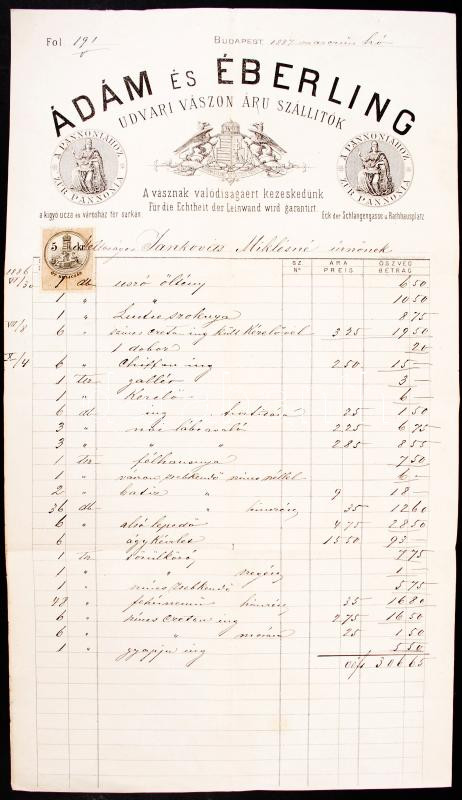 Fol 191
BUDAPEST, 1887 marczius hó
ÁDÁM ÉS ÉBERLING
UDVARI VÁSZON ÁRU SZÁLLITÓK
A PANNONIÁHOZ
ZUR PANNONIA
A PANNONIÁHOZ
ZUR PANNONIA
A vásznak valódiságáért kezeskedünk
Für die Echtheit der Leinwand wird garantirt.
a kigyó ucza és városház tér sarkán
Eck der Schlangengasse u. Rathhausplatz
5 kr.
Jankovits Miklósné úrnőnek
SZ. Nº ÁRA PREIS ÖSSZVEG BETRAG
1886
VI/30 1 db uszó öltöny 6 50
1 " " 10 50
1 " szoknya 8 75
VII/8 6 " szines ing kézelővel 3 25 19 50
1 doboz 20
X/4 6 " Chiffon ing 2 50 15 —
1 gallér 3 —
1 " kézelő 6 —
6 db ing 25 1 50
3 " női lábravaló 2 25 6 75
3 " " " 2 85 8 55
1 7 50
1 " zsebkendő 6 —
2 " batiz " 9 18 —
36 db " himzés 35 12 60
6 " alsó lepedő 4 75 28 50
6 " 15 50 93 —
1 törülköző 7 75
1 " " 1 —
1 " zsebkendő 5 75
48 " fehérnemű himzés 35 16 80
6 " szines ing 2 75 16 50
6 " " 25 1 50
1 " gyapju ing 5 50
306 65